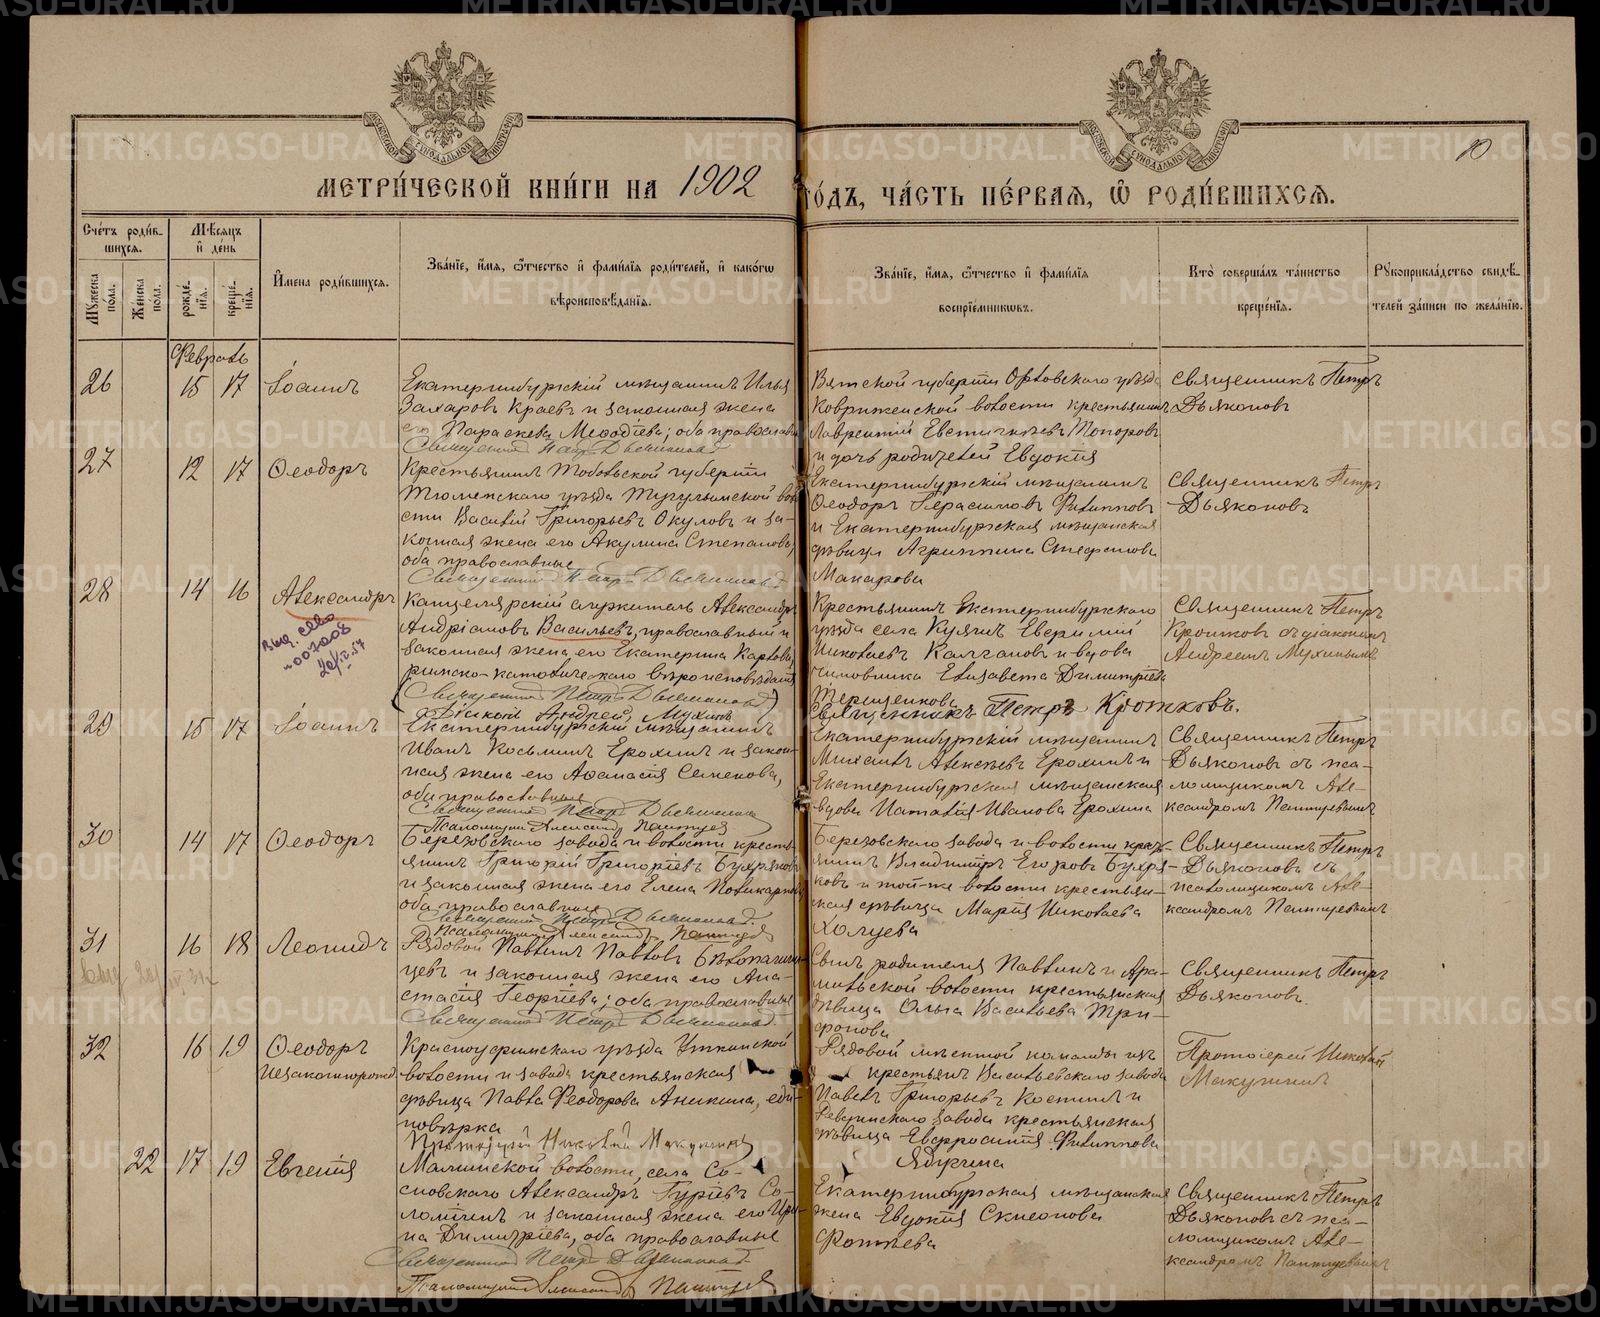 МЕТРИЧЕСКОЙ КНИГИ НА 1902
ГОДЪ, ЧАСТЬ ПЕРВАЯ, Ѡ РОДИВШИХСЯ.
10
Счетъ родив-
шихся.
Мужеска
пола.
Женска
пола.
Мѣсяцъ
и день
рожде-
нія.
креще-
нія.
Имена родившихся.
Званіе, имя, отчество и фамилія родителей, и какогѡ
вѣроисповѣданія.
Званіе, имя, отчество и фамилія
воспріемниковъ.
Кто совершалъ таинство
крещенія.
Рукоприкладство свидѣ-
телей записи по желанію.
Февраль
26 15 17 Іоаннъ
Екатеринбургскій мѣщанинъ Илья
Захаровъ Краевъ и законная жена
его Параскева Меѳодіева; оба православн
Священникъ Петръ Дьяконовъ
Вятской губерніи Орловскаго уѣзда
Ковриженской волости крестьянинъ
Лаврентій Евстигнѣевъ Топоровъ
и дочь родителей Евдокія
Священникъ Петръ
Дьяконовъ
27 12 17 Ѳеодоръ
Крестьянинъ Тобольской губерніи
Тюменскаго уѣзда Тугулымской воло
сти Василій Григорьевъ Окуловъ и за-
конная жена его Акулина Степановъ,
оба православные
Священникъ Петръ Дьяконовъ
Екатеринбургскій мѣщанинъ
Ѳеодоръ Герасимовъ Филипповъ
и Екатеринбургская мѣщанская
дѣвица Агриппина Стефанова
Макарова
Священникъ Петръ
Дьяконовъ
28 14 16 Александръ
Выд. св-во
№007008
Канцелярскій служитель Александръ
Андріановъ Васильевъ, православный и
законная жена его Екатерина Карлова,
римско-католическаго вѣроисповѣданія
(Священникъ Петръ Дьяконовъ)
Діаконъ Андрей Мухинъ
Крестьянинъ Екатеринбургскаго
уѣзда села Куяшъ Евѳимій
Николаевъ Калгановъ и вдова
чиновника Елизавета Димитріева
Терещенкова
Священникъ Петръ Кротковъ.
Священникъ Петръ
Кротковъ съ діакономъ
Андреемъ Мухинымъ
29 15 17 Іоаннъ
Екатеринбургскій мѣщанинъ
Иванъ Косьминъ Ерохинъ и закон-
ная жена его Аѳанасія Семенова,
оба православные
Священникъ Петръ Дьяконовъ
Псаломщикъ Александръ
Екатеринбургскій мѣщанинъ
Михаилъ Алексѣевъ Ерохинъ и
Екатеринбургская мѣщанская
вдова Наталія Иванова Ерохина
Священникъ Петръ
Дьяконовъ съ пса-
ломщикомъ Але-
ксандромъ
30 14 17 Ѳеодоръ
Березовскаго завода и волости кресть-
янинъ Григорій Григорьевъ
и законная жена его Елена Поликарпов
оба православные
Священникъ Петръ Дьяконовъ
Псаломщикъ Александръ
Березовскаго завода и волости крес-
янинъ Владиміръ Егоровъ Бухря-
ковъ и той-же волости крестьян-
ская дѣвица Марія Николаева
Холуева
Священникъ Петръ
Дьяконовъ съ
псаломщикомъ Але-
ксандромъ
31 16 18 Леонидъ
Рядовой Павлинъ Павловъ
цевъ и законная жена его Ана-
стасія Георгіева; оба православные
Священникъ Петръ Дьяконовъ
Сынъ родителя Павлинъ и Ара-
мильской волости крестьянская
дѣвица Ольга Васильева Три-
фонова
Священникъ Петръ
Дьяконовъ.
32 16 19 Ѳеодоръ
незаконнорожд
Красноуфимскаго уѣзда Уткинской
волости и завода крестьянская
дѣвица Павла Ѳеодорова Аникина, еди-
новѣрка
Протоіерей Николай Макушинъ
Рядовой мѣстной команды изъ
крестьянъ Васильевскаго завода
Павелъ Григорьевъ Костинъ и
Ревдинскаго завода крестьянская
дѣвица Евфросинія Филиппова
Ябурина
Протоіерей Николай
Макушинъ
22 17 19 Евгенія
Маминской волости, села Со-
сновскаго Александръ Гуріевъ Со-
ломеинъ и законная жена его Ири-
на Димитріева, оба православные
Священникъ Петръ Дьяконовъ
Псаломщикъ Александръ
Екатеринбургская мѣщанская
жена Евдокія Симеонова
Фотѣева
Священникъ Петръ
Дьяконовъ съ пса-
ломщикомъ Але-
ксандромъ
METRIKI.GASO-URAL.RU